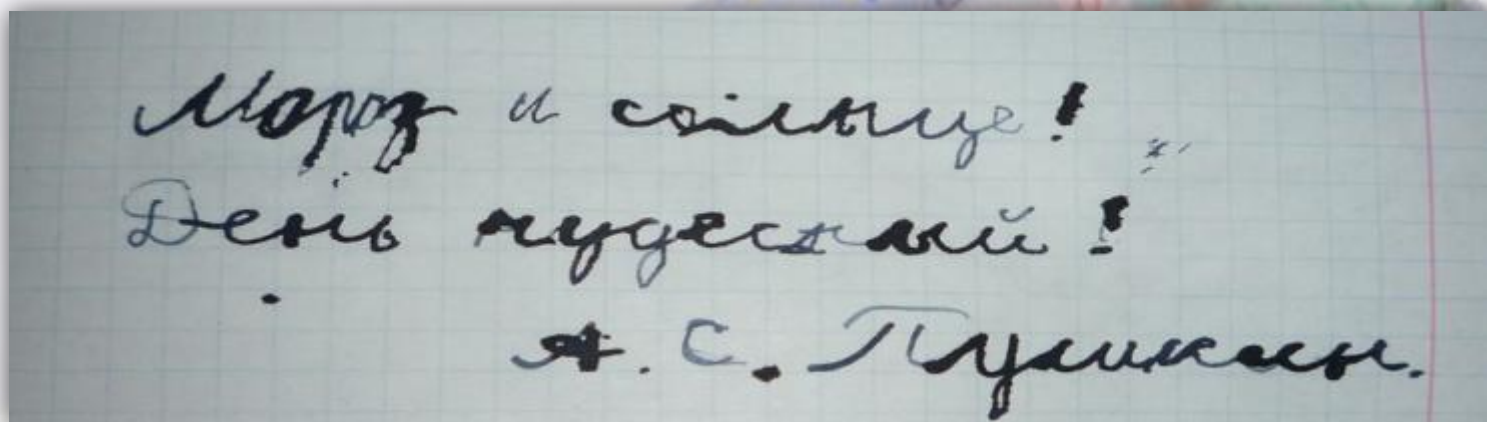 Мороз и солнце!
День чудесный!
А. С. Пушкин.